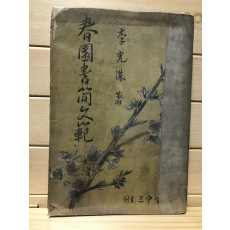 春園書簡文範
李光洙 著